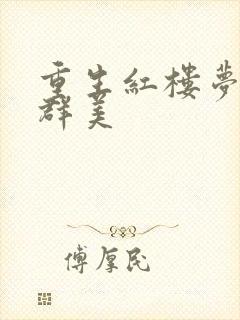 重生紅樓夢
群美
傅厚民